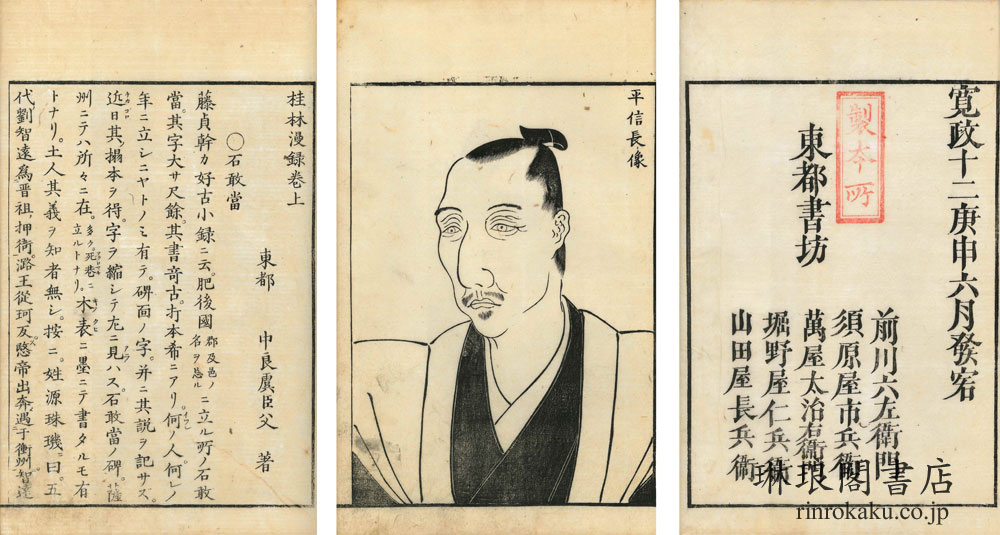 桂林漫録巻上
東都 中良虞臣父 著
○石敢當
藤貞幹カ好古小録ニ云。肥後國郡及邑ノ名ヲ忘ルニ立ル所ノ石敢
當。其字大サ尺餘。其書奇古。打本希ニアリ。何ノ人何レノ
年ニ立シニヤトノミ有テ。碑面ノ字。并ニ其説ヲ記サズ。
近日其搨本ヲ得。字ヲ縮シテ左ニ見ハス。石敢當ノ碑。薩
州ニテハ所々ニ在。多ク死巷ニ立ルトナリ。木表ニ墨ニテ書タルモ有
トナリ。土人其義ヲ知者無シ。按ニ。姓源珠璣ニ曰。五
代劉智遠為晋祖押衙。潞王從珂反。愍帝出奔。遇于衛州。智遠
平信長像
寛政十二庚申六月發宕
製本所
東都書坊
前川六左衛門
須原屋市兵衞
萬屋太治右衞門
堀野屋仁兵衞
山田屋長兵衞
琳琅閣書店
rinrokaku.co.jp